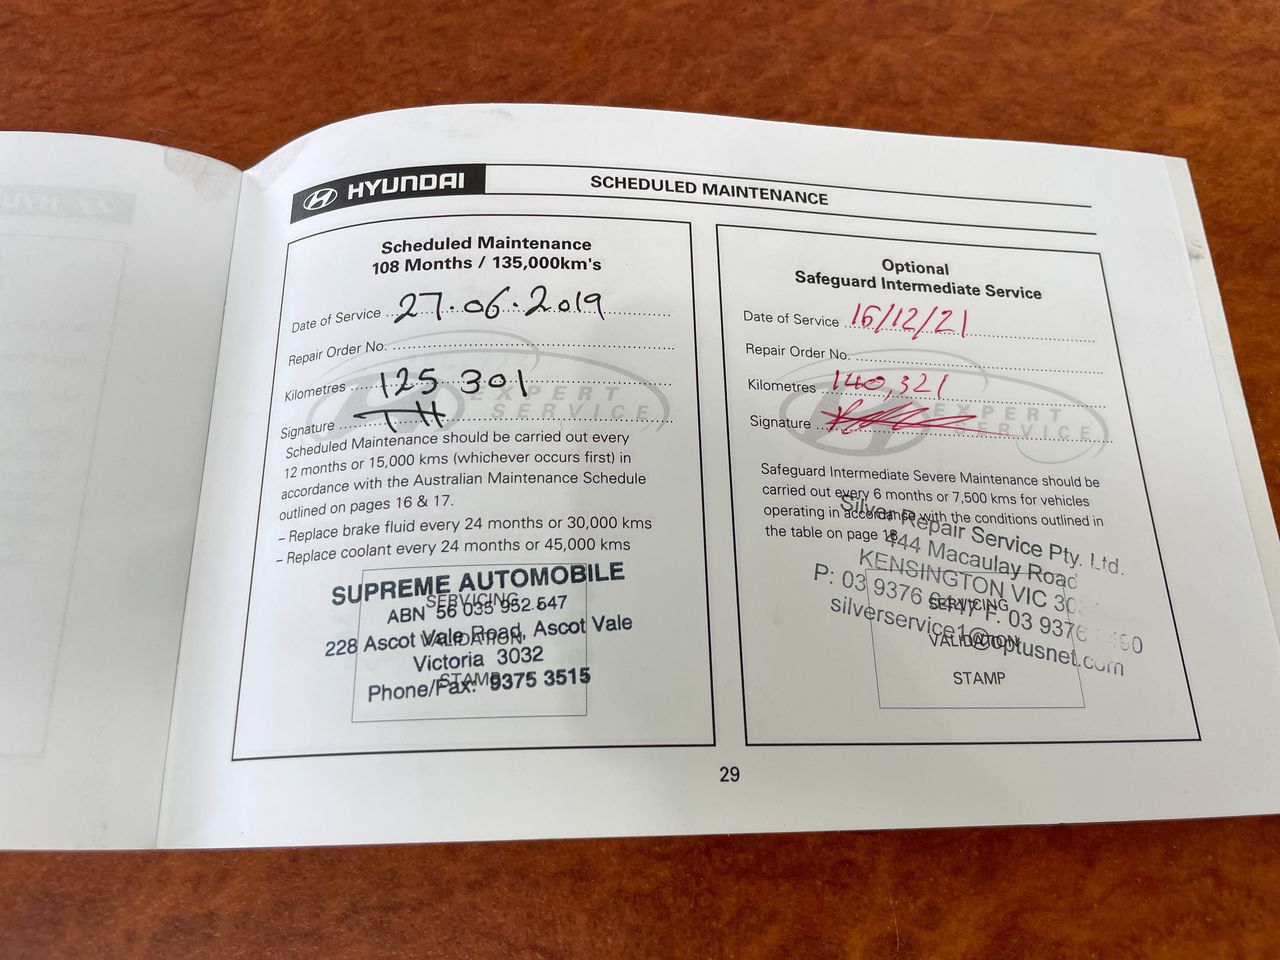 HYUNDAI
SCHEDULED MAINTENANCE
Scheduled Maintenance
108 Months / 135,000km's
Date of Service 27.06.2019
Repair Order No.
Kilometres 125 301
Signature TH
EXPERT
SERVICE
Scheduled Maintenance should be carried out every
12 months or 15,000 kms (whichever occurs first) in
accordance with the Australian Maintenance Schedule
outlined on pages 16 & 17.
– Replace brake fluid every 24 months or 30,000 kms
– Replace coolant every 24 months or 45,000 kms
SUPREME AUTOMOBILE
ABN 56 035 952 547
228 Ascot Vale Road, Ascot Vale
Victoria 3032
Phone/Fax: 9375 3515
SERVICING
VALIDATION
STAMP
Optional
Safeguard Intermediate Service
Date of Service 16/12/21
Repair Order No.
Kilometres 140,321
Signature
EXPERT
SERVICE
Safeguard Intermediate Severe Maintenance should be
carried out every 6 months or 7,500 kms for vehicles
operating in accordance with the conditions outlined in
the table on page 18.
Silver Repair Service Pty. Ltd.
444 Macaulay Road
KENSINGTON VIC
P: 03 9376 F: 03 9376
silverservice1@optusnet.com
SERVICING
VALIDATION
STAMP
29